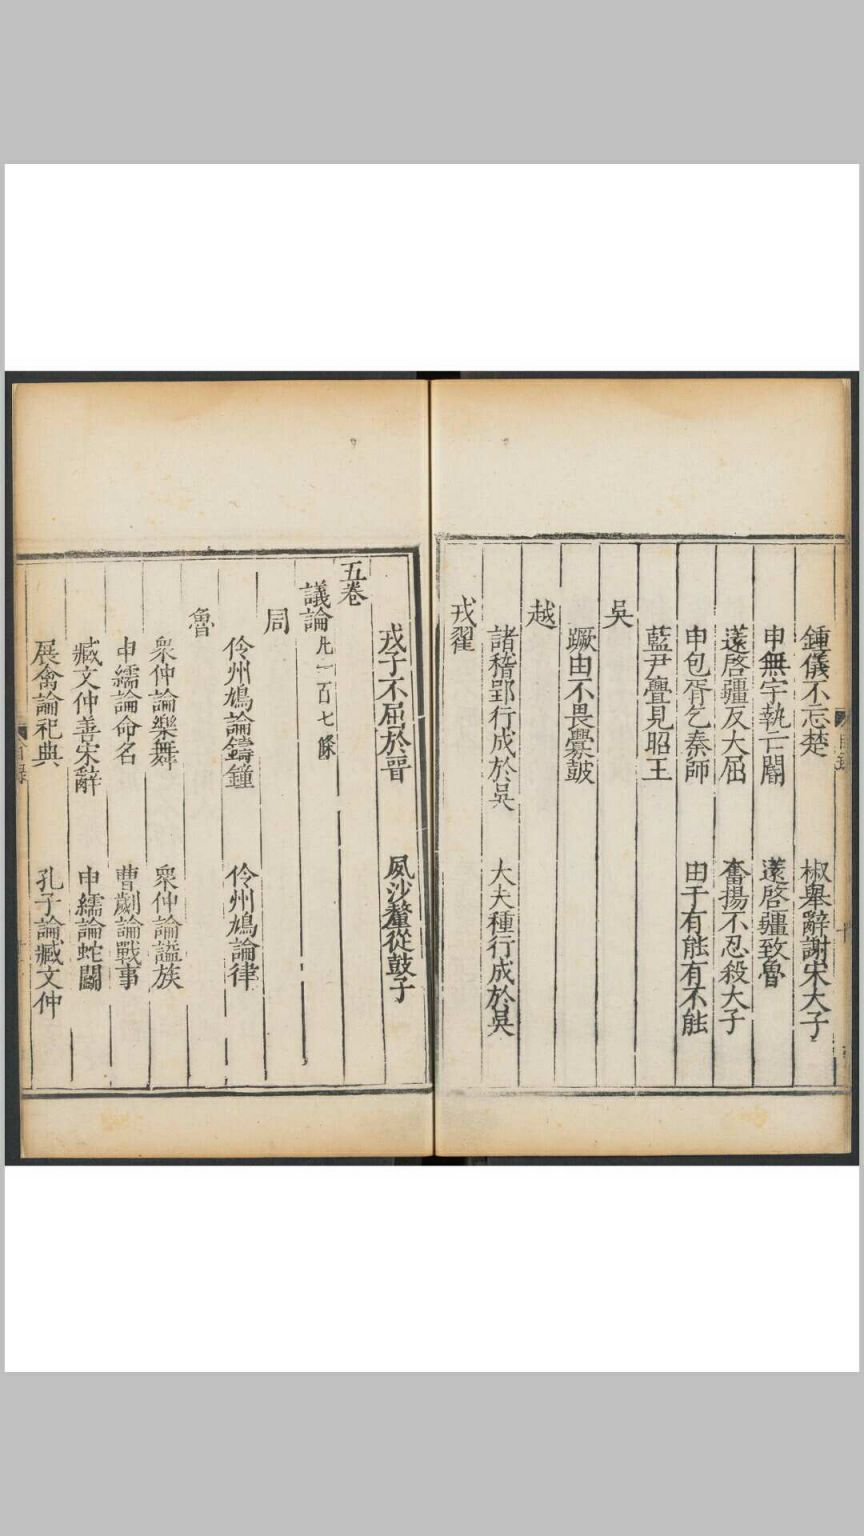 鍾儀不忘楚　椒舉辭謝宋大子
申無宇執亡閽　薳啓疆致魯
薳啓疆反大屈　奮揚不忍殺大子
申包胥乞秦師　由于有能有不能
藍尹亹見昭王
吳
蹶由不畏釁鼓
越
諸稽郢行成於吳　大夫種行成於吳
戎翟
戎子不屈於晉　夙沙釐從鼓子
五卷
議論凡一百七條
周
伶州鳩論鑄鐘　伶州鳩論律
魯
衆仲論樂舞　衆仲論諡族
申繻論命名　曹劌論戰事
臧文仲善宋辭　申繻論蛇鬬
展禽論祀典　孔子論臧文仲
目録